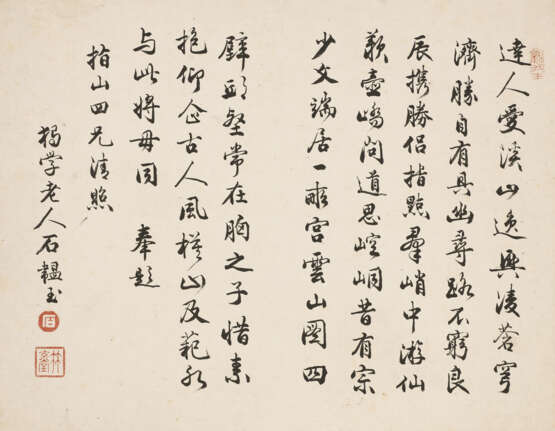 達人愛溪山逸興淩蒼穹
濟勝自有具幽尋路不窮良
辰携勝侶指點羣峭中游仙
歌壺嶠問道思崆峒昔有宗
少文端居一畝宮雲山圖四
壁邱壑常在胸之子惜素
抱仰企古人風模山及範水
与此將毋同 奉題
指山四兄清照
獨学老人石韞玉